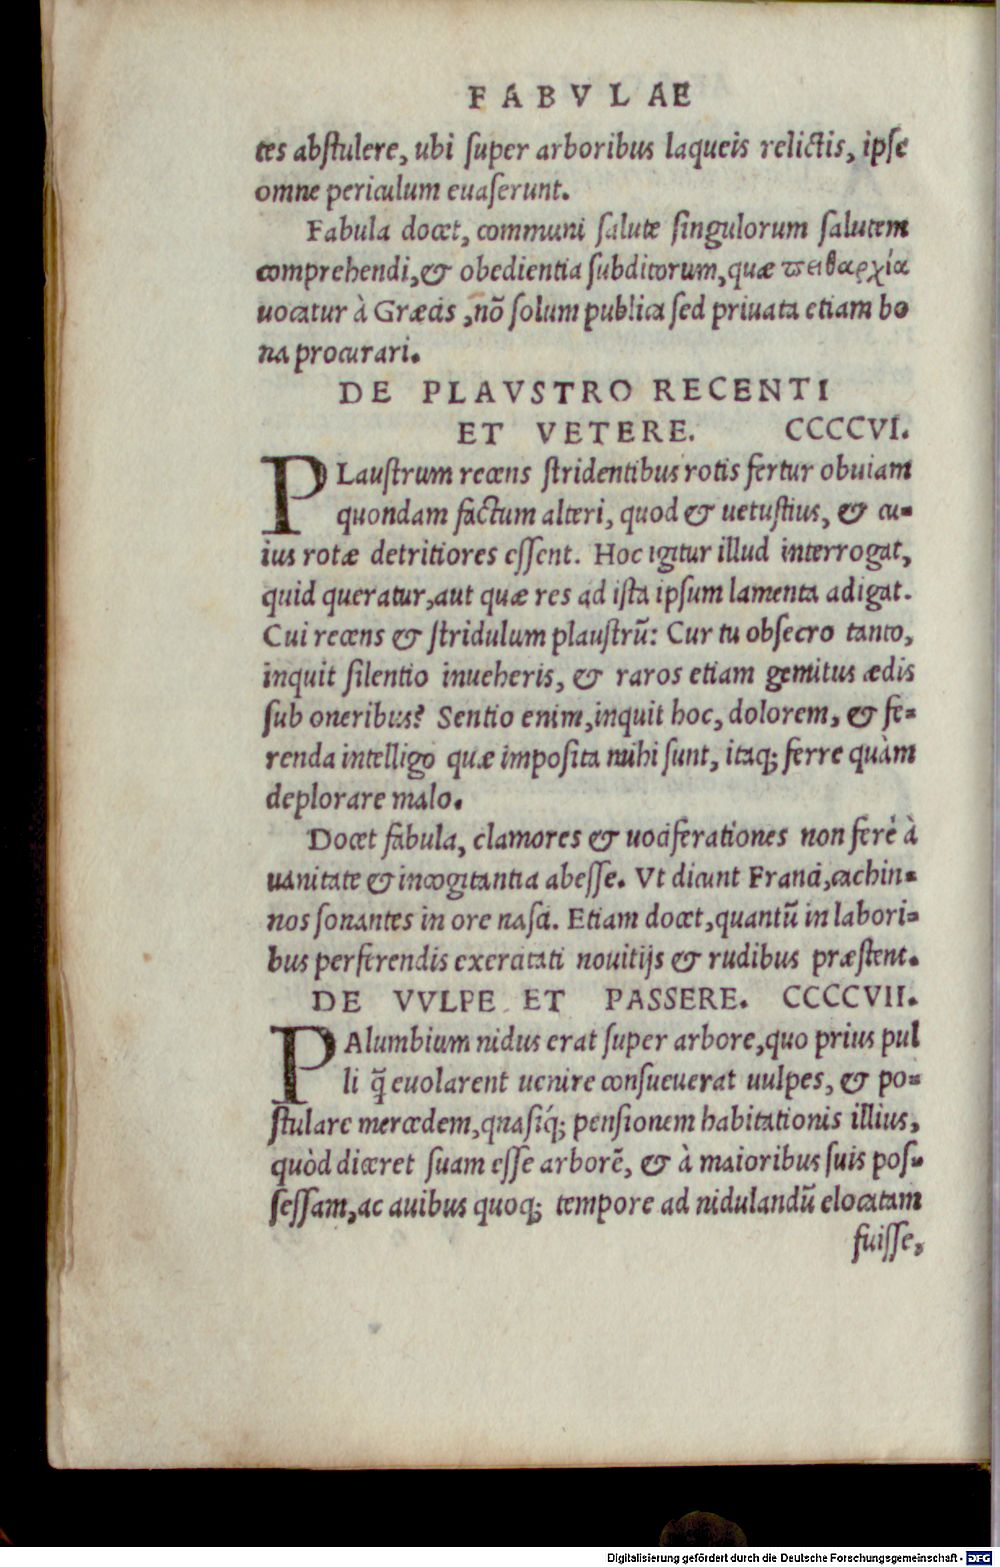 FABVLAE
tes abstulere, ubi super arboribus laqueis relictis, ipse
omne periculum euaserunt.
Fabula docet, communi salute singulorum salutem
comprehendi, & obedientia subditorum, quæ πειθαρχία
uocatur à Græcis, nõ solum publica sed priuata etiam bo
na procurari.
DE PLAVSTRO RECENTI
ET VETERE. CCCCVI.
PLaustrum recens stridentibus rotis fertur obuiam
quondam factum alteri, quod & uetustius, & cu-
ius rotæ detritiores essent. Hoc igitur illud interrogat,
quid queratur, aut quæ res ad ista ipsum lamenta adigat.
Cui recens & stridulum plaustrũ: Cur tu obsecro tanto,
inquit silentio inueheris, & raros etiam gemitus ædis
sub oneribus? Sentio enim, inquit hoc, dolorem, & fe-
renda intelligo quæ imposita mihi sunt, itaq; ferre quàm
deplorare malo.
Docet fabula, clamores & uociferationes non ferè à
uanitate & incogitantia abesse. Vt dicunt Franci, cachin-
nos sonantes in ore nasci. Etiam docet, quantũ in labori-
bus perferendis exercitati nouitijs & rudibus præstent.
DE VVLPE ET PASSERE. CCCCVII.
PAlumbium nidus erat super arbore, quo prius pul
li q̃ euolarent uenire consueuerat uulpes, & po-
stulare mercedem, quasiq́; pensionem habitationis illius,
quòd diceret suam esse arborẽ, & à maioribus suis pos-
sessam, ac auibus quoq; tempore ad nidulandũ elocatam
fuisse,
Digitalisierung gefördert durch die Deutsche Forschungsgemeinschaft - DFG